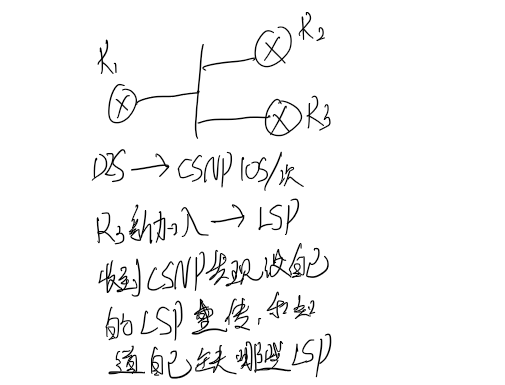 R1
R2
R3
DIS → CSNP 10S/次
R3新加入 → LSP
收到CSNP发现没自己
的LSP重传,和知
道自己缺哪些LSP